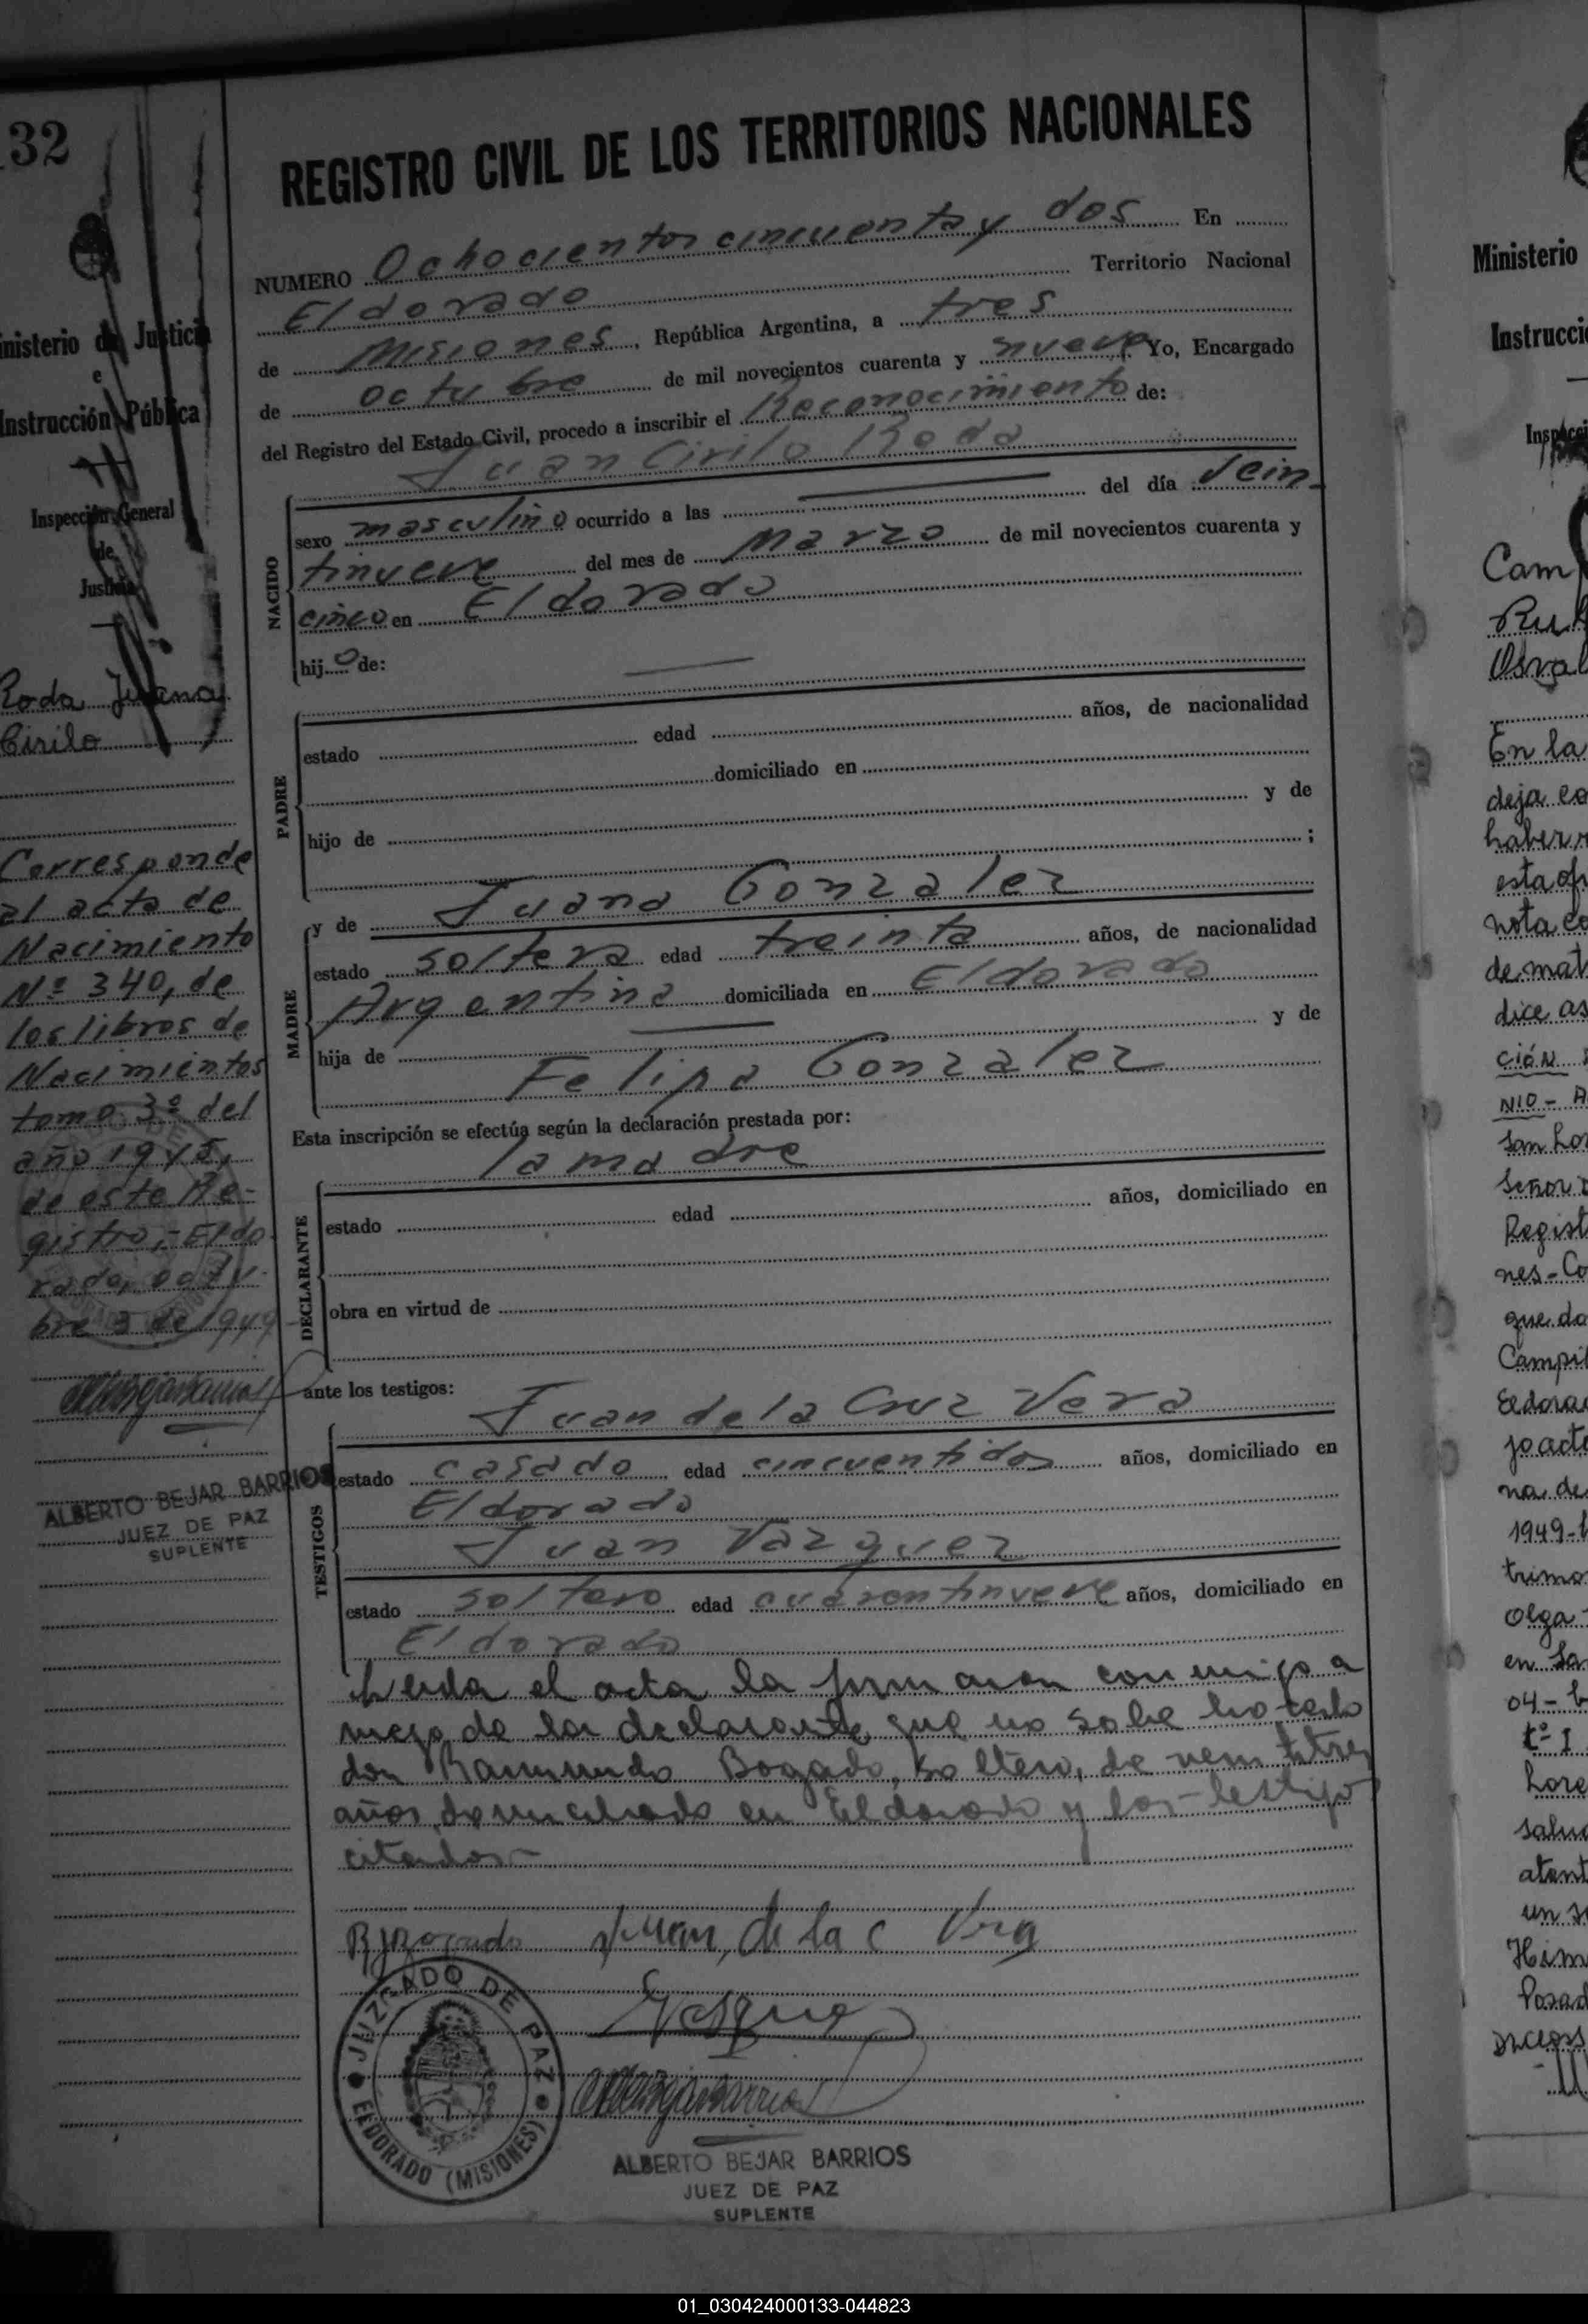 132
Ministerio de Justicia
e
Instrucción Pública
Inspección General
de
Justicia
Roda Juana
Cirilo
Corresponde
al acta de
Nacimiento
Nº 340, de
los libros de
Nacimientos
tomo 3º del
año 1945,
de este Re-
gistro,- Eldo-
rado, octu-
bre 3 de 1949
ALBERTO BEJAR BARRIOS
JUEZ DE PAZ
SUPLENTE
REGISTRO CIVIL DE LOS TERRITORIOS NACIONALES
NUMERO Ochocientos cincuenta y dos En
Eldorado Territorio Nacional
de Misiones, República Argentina, a tres
de octubre de mil novecientos cuarenta y nueve. Yo, Encargado
del Registro del Estado Civil, procedo a inscribir el Reconocimiento de:
Juan Cirilo Roda
NACIDO
sexo masculino ocurrido a las del día vein-
tinueve del mes de Marzo de mil novecientos cuarenta y
cinco en Eldorado
hijo de:
PADRE
estado edad años, de nacionalidad
domiciliado en
hijo de y de
;
MADRE
y de Juana Gonzalez
estado soltera edad treinta años, de nacionalidad
Argentina domiciliada en Eldorado
hija de y de
Felipa Gonzalez
Esta inscripción se efectúa según la declaración prestada por:
la madre
DECLARANTE
estado edad años, domiciliado en
obra en virtud de
ante los testigos:
Juan de la Cruz Vera
TESTIGOS
estado casado edad cincuentidos años, domiciliado en
Eldorado
Juan Vazquez
estado soltero edad cuarentinueve años, domiciliado en
Eldorado
Leida el acta la firmaron conmigo a
ruego de la declarante que no sabe lo
don Raimundo Bogado, soltero, de veintitres
años, domiciliado en Eldorado y los testigos
citados.-
R Bogado Juan de la C Vera
JUZGADO DE PAZ
ELDORADO (MISIONES)
ALBERTO BEJAR BARRIOS
JUEZ DE PAZ
SUPLENTE
Ministerio
Instrucci
Cam
En la
deja co
haber
esta of
nota co
de mat
dice as
CIÓN
NIO - A
San Lo
Señor
Regist
nes - Co
que da
Campi
Eldora
jo acta
na de
1949-
Olga
en Sa
04 -
tº I
Lore
salu
atent
un s
Posad
01_030424000133-044823